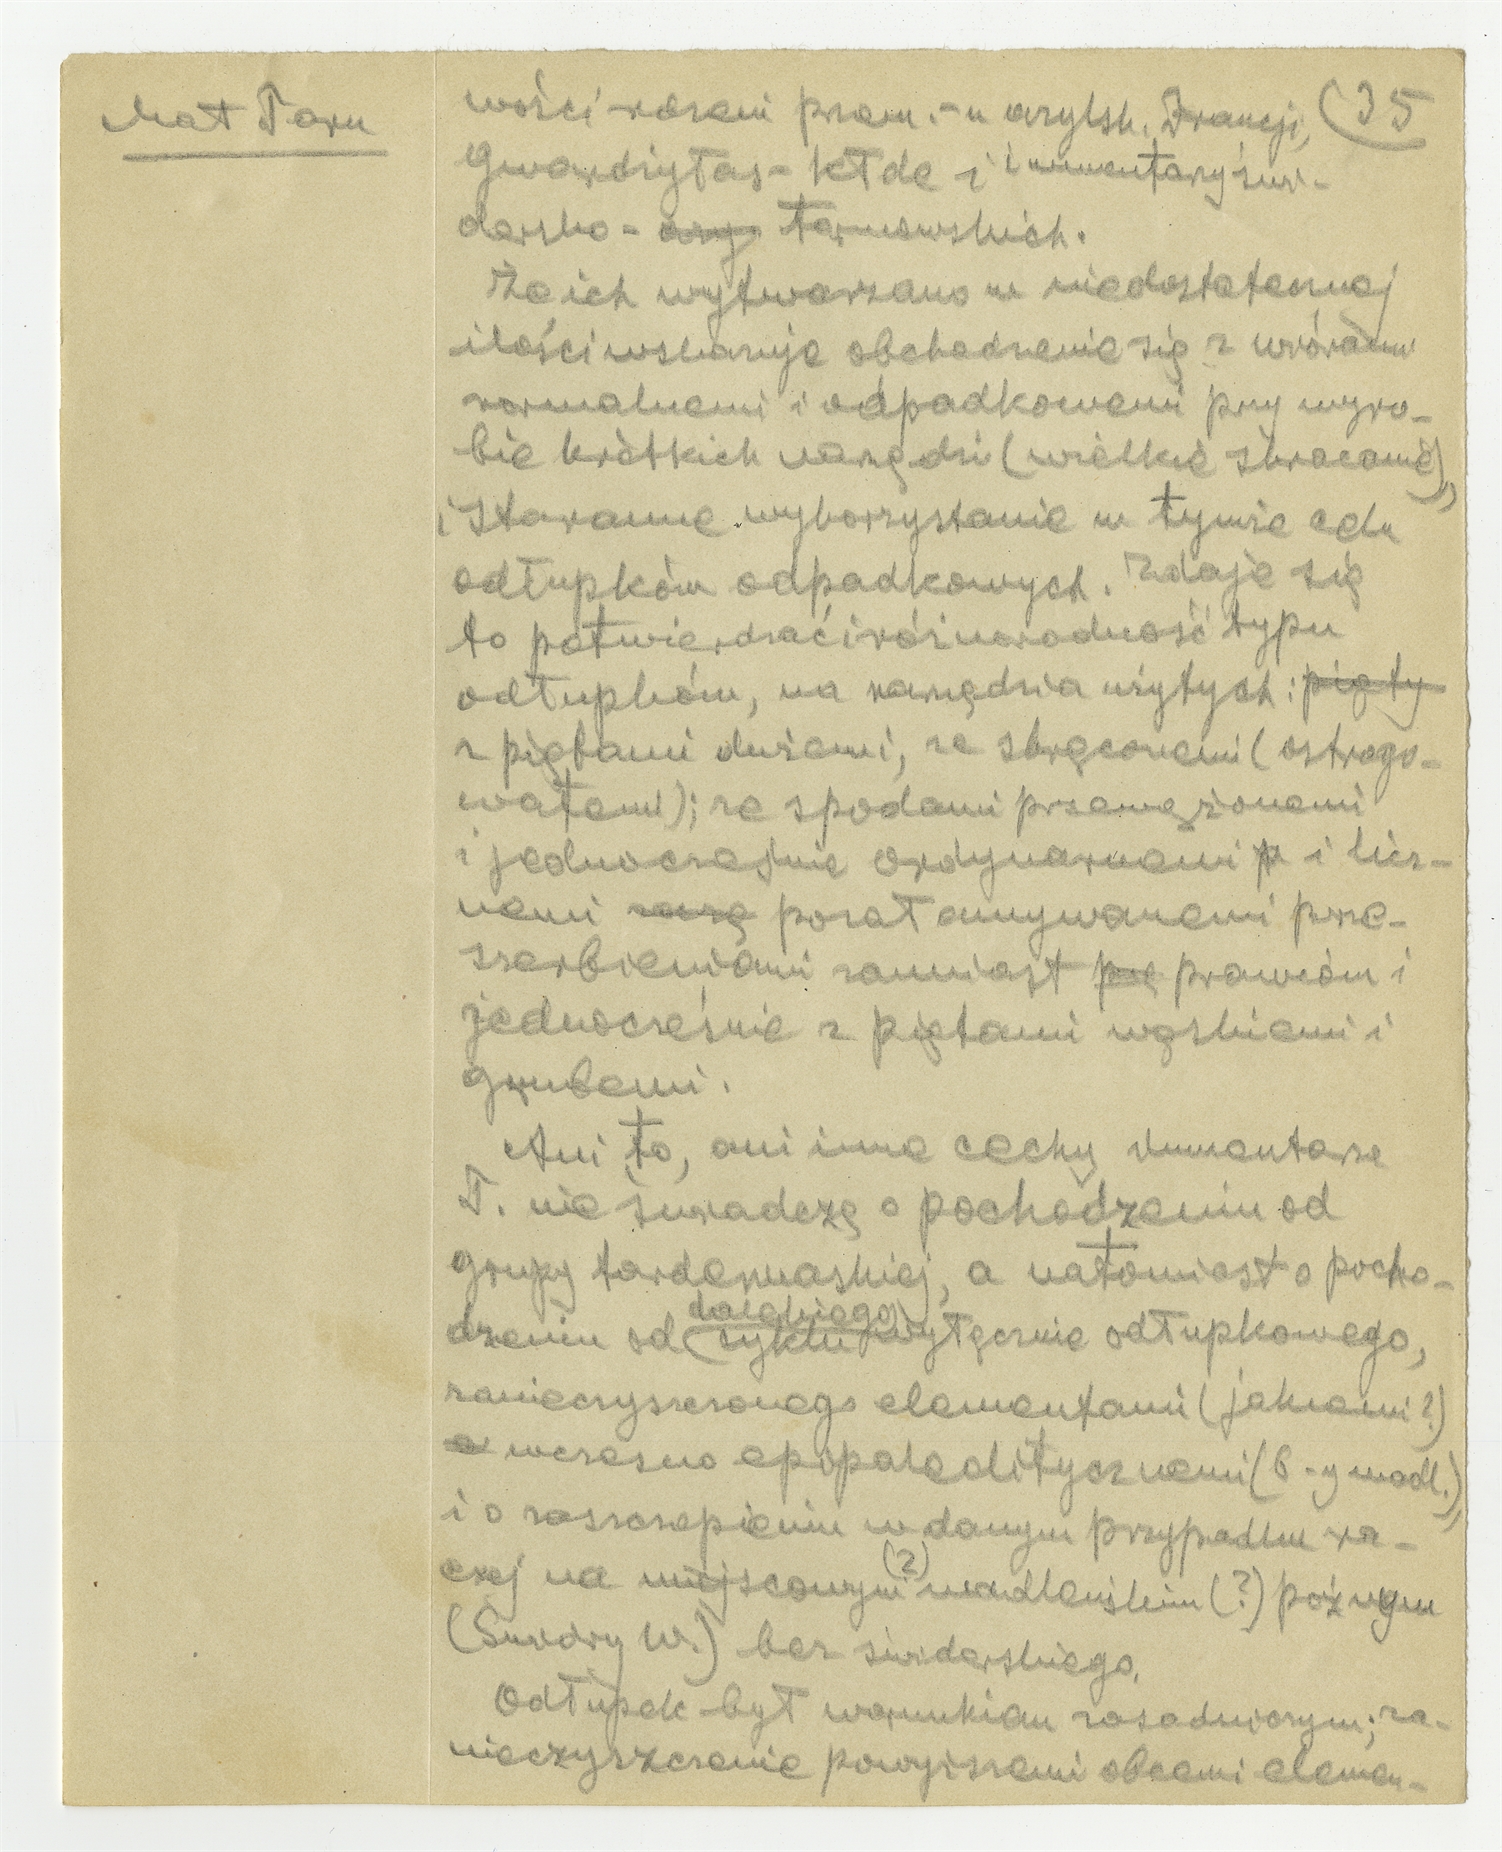 Mat Tarn
35
wości razem przem.-u azylsk. Francji,
Gwardzytas-Kłde i inwentarzy świ-
dersko- azy tarnowskich.
Że ich wytwarzano w niedostatecznej
ilości wskazuje obchodzenie się z wiórami
normalnemi i odpadkowemi przy wyro-
bie krótkich narzędzi (wielkie skracanie),
i staranne wykorzystanie w tymże celu
odłupków odpadkowych. Zdaje się
to potwierdzać i różnorodność typu
odłupków, na narzędzia użytych: pięty
z piętami dużemi, ze skręconemi (ostrogo-
watemi); ze spodami przewężonemi
i jednocześnie ordynarnemi p i licz-
nemi pozałamywanemi prze-
szczerbieniami zamiast prawców i
jednocześnie z piętami wąskiemi i
grubemi.
Ani to, ani inne cechy inwentarza
T. nie świadczą o pochodzeniu od
grupy tardenuaskiej, a natomiast o pocho-
dzeniu od dalekiego cyklu wyłącznie odłupkowego,
zanieczyszczonego elementami (jakiemi?)
wczesno epipaleolitycznemi (6-y madl.),
i o zaszczepieniu w danym przypadku ra-
czej na miejscowym (?) madleńskim (?) późnym
(Świdry W.) bez świderskiego.
Odłupek był warunkiem zasadniczym; za-
nieczyszczenie powyższemi obcemi elemen-